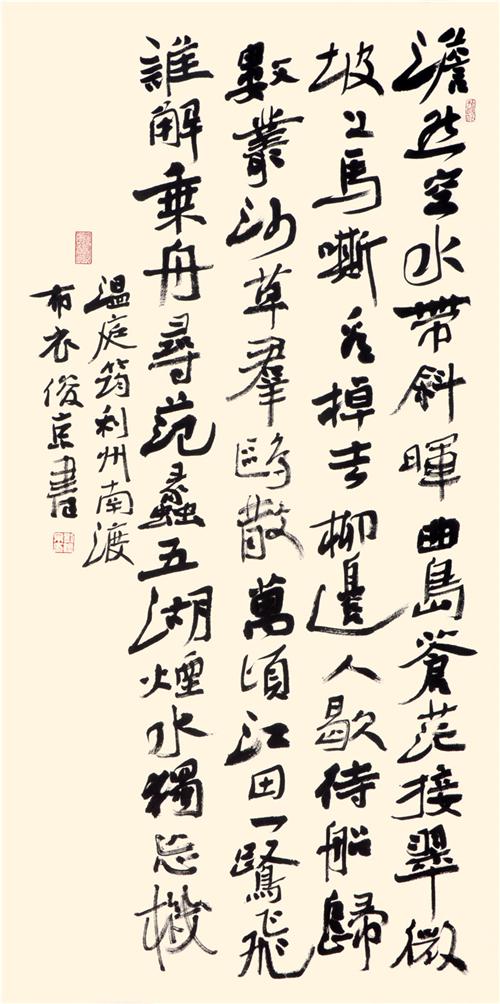 澹然空水帶斜暉曲島蒼茫接翠微
坡上馬嘶看掉去柳邊人歇待船歸
數叢沙草羣鷗散萬頃江田一鷺飛
誰解乘舟尋范蠡五湖煙水獨忘機
溫庭筠利州南渡
布衣俊京書